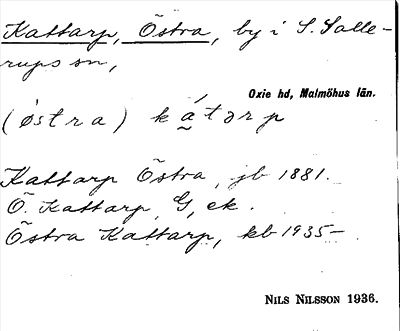 Kattarp, Östra, by i S. Salle-
rups sn,
Oxie hd, Malmöhus län.
(östra) kátərp
Kattarp Östra, jb 1881.
Ö. Kattarp, G, ek.
Östra Kattarp, kb 1935–
NILS NILSSON 1936.